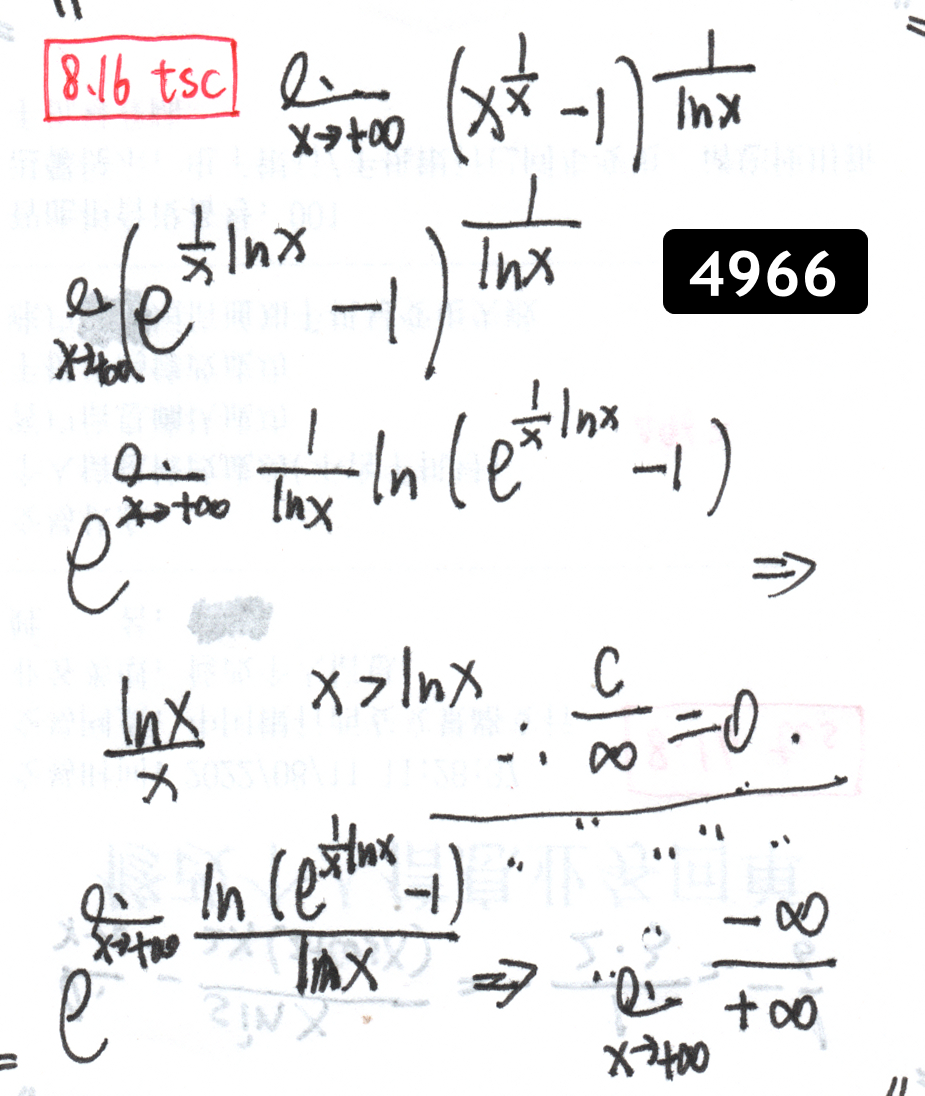 8.16 tsc
lim x→+∞ (x^(1/x) -1)^(1/lnx)
lim x→+∞ (e^(1/x lnx) -1)^(1/lnx)
4966
e^(lim x→+∞ 1/lnx ln(e^(1/x lnx) -1))
⇒
lnx/x x > lnx ∴ C/∞ = 0.
e^(lim x→+∞ ln(e^(1/x lnx) -1)/lnx) ⇒ lim x→+∞ -∞/+∞